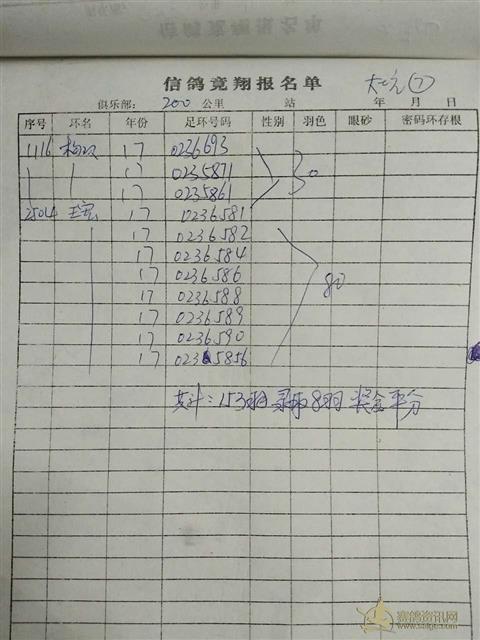 信鸽竟翔报名单
俱乐部： 200 公里 站 年 月 日
序号 环名 年份 足环号码 性别 羽色 眼砂 密码环存根
1116 17 0236693
17 0235871 30
17 0235861
17 0236581
17 0236582
17 0236584
17 0236586 80
17 0236588
17 0236589
17 0236590
17 0235856
共计：153羽 录取8羽 奖金平分
赛鸽资讯网